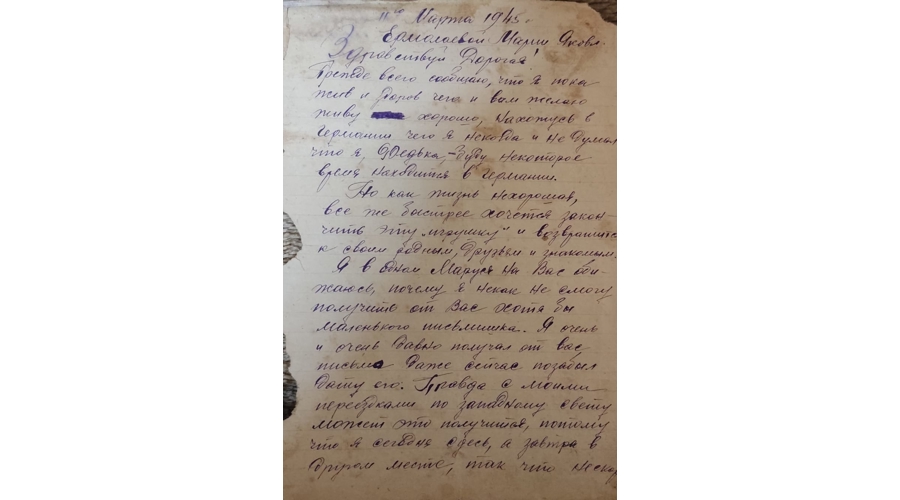 11го Марта 1945 г
Ермолаевой Марии Яковл-
Здравствуй Дорогая!
Прежде всего сообщаю, что я пока
жив и здоров чего и вам желаю
живу хорошо, нахожусь в
Германии чего я некогда и не думал
что я, Федька, - буду некоторое
время находится в Германии.
Но как жизнь не хорошая,
все же быстрее хочется закон-
чить эту "игрушку" и возвратится
к своим родным, друзьям и знакомым.
Я в одном Маруся на Вас оби-
жаюсь, почему я некак не смогу
получить от Вас хотя бы
маленького письмишка. Я очень
и очень давно получал от вас
письма даже сейчас позабыл
дату его. Правда с моими
переездками по западному свету
может это получится, потому
что я сегодня здесь, а завтра в
другом месте, так что не